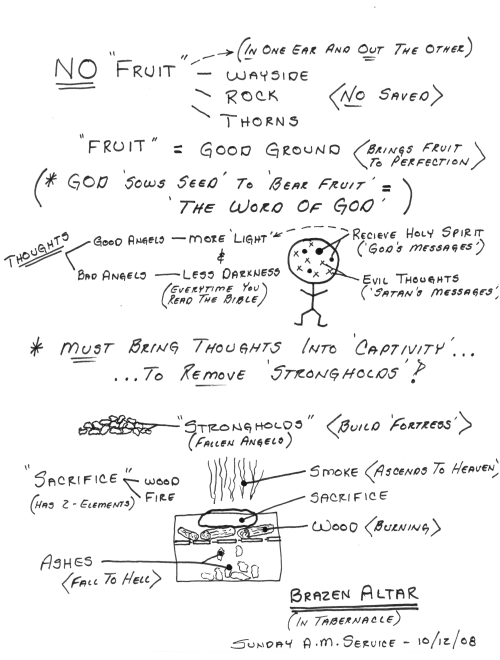 (IN ONE EAR AND OUT THE OTHER)
NO "FRUIT"
— WAYSIDE
— ROCK <NO SAVED>
— THORNS
"FRUIT" = GOOD GROUND <BRINGS FRUIT
TO PERFECTION>
(* GOD 'SOWS SEED' TO 'BEAR FRUIT' =
'THE WORD OF GOD')
THOUGHTS
GOOD ANGELS — MORE 'LIGHT'
&
BAD ANGELS — LESS DARKNESS
(EVERYTIME YOU
READ THE BIBLE)
RECIEVE HOLY SPIRIT
('GOD'S MESSAGES')
EVIL THOUGHTS
('SATAN'S MESSAGES')
* MUST BRING THOUGHTS INTO 'CAPTIVITY'...
...TO REMOVE 'STRONGHOLDS'!
"STRONGHOLDS" <BUILD 'FORTRESS'>
(FALLEN ANGELS)
"SACRIFICE"
(HAS 2-ELEMENTS)
WOOD
FIRE
SMOKE <ASCENDS TO HEAVEN>
SACRIFICE
WOOD <BURNING>
ASHES
<FALL TO HELL>
BRAZEN ALTAR
(IN TABERNACLE)
SUNDAY A.M. SERVICE - 10/12/08